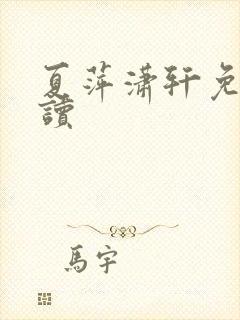 夏萍潇轩免
讀
馬宇